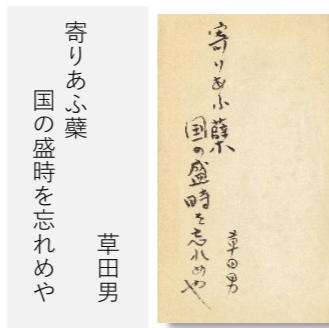 寄りあふ蘖
国の盛時を忘れめや
草田男
寄りあふ蘖
国の盛時を忘れめや
草田男